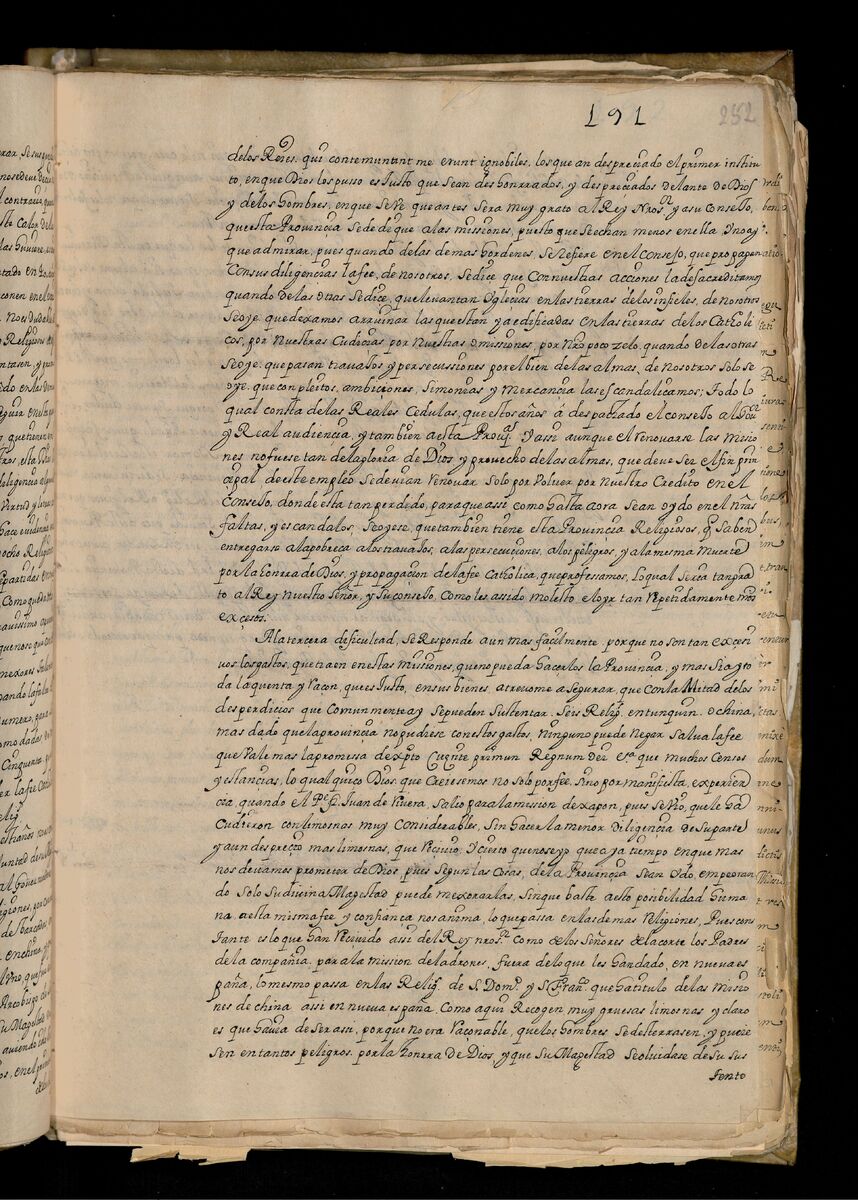 191
252
de los Reies. qui contemnunt me erunt ignobiles, los que an despreciado el primer institu
to, en que Dios los pusso es Iusto que sean deshonrrados, y despreciados delante de Dios
y de los hombres, en que se Ve que antes sera muy grato al Rey Nro sr y a su Consejo,
que esta Provincia se dedeque a las missiones, puesto que se echan menos en ella Ino ay
que admirar, pues quando de las demas hordenes, se refiere en el consejo, que propagan
Con sus diligencias la fee, de nosotros, se dice que Con nuestras acciones la desacreditamos
quando de las otras se dice, que levantan Yglecias en las tierras de los infieles, de nosotros
se oye. que dexamos arruinar las que estan ya edificadas en las tierras de los Catholi
cos, por nuestras Cudicias por nuestras omissiones, por nro poco zelo, quando de las otras
se oye. que pasan travaxos y persecussiones por el bien de las almas, de nosotros solo se
oye. que con pleitos, ambiciones, simonias y mercancia las escandalicamos; todo lo
qual consta de las Reales Cedulas, que estos años a despachado el consejo al Govor
y Real audiencia, y tambien a esta Provia. Y assi aunque el renovarse las missio
nes no fuese tan de la gloria de Dios y provecho de las almas, que deve ser el fin prin
cipal de este empleo se devian renovar solo por volver por nuestro Credito en el
Consejo, donde esta tan perdido, para que assi como hasta aora sean oydo en el nras
faltas, y escandalos, se oyese, que tambien tiene esta Provincia Religiosos, q saben
entregarse a la pobreca a los travaxos, a las persecuciones, a los peligros, y a la mesma muerte
por la honrra de Dios, y propagacion de la fee Catholica, que professamos, lo qual seria tan gra
to al Rey nuestro señor, y su consejo, como les assido molesto el oyr tan repetidamente nros
excesos.
A la tercera dificultad, se Responde aun mas facilmente, porque no son tan excesi
vos los gastos, que traen en estas missiones, que no pueda hacerlos la Provincia, y mas
da la quenta y racon, que es Justo, en sus bienes, atrevome a segurar, que con la Mitad de los
desperdicios que comunmente ay se pueden sustentar. seis Relig. en tunquin. o china,
mas dado que la provincia no pudiese con estos gastos, ninguno puede negar salva la fee
que vale mas la promessa de xpto Querite primun Regnum Dei &a que muchos Censos
y estancias, lo qual quico Dios. que creiesemos no solo por fee, sino por manifiesta, experien
cia, quando el Pe fr Juan de rivera, salio para la mission de xapon, pues se vio, que le ha
cudieron con limosnas muy considerables, sin hacer la menor diligencia de su parte
y aun desprecio mas limosnas, que reciuio. Y cierto que no se yo que aya tiempo en que mas
nos devamos prometer de Dios, pues segun las cosas, de la Provincia sean ydo, empeoran
do solo su divina Magestad puede mexorarlas, sin que baste a esto posibilidad huma
na, a esta misma fee y confiança nos anima, lo que passa en las demas religiones, Pues cons
tante es lo que han reciuido assi del Rey nro sr. como de los señores de la corte los Padres
de la compañia. para la mission de ladrones, fuera de lo que les han dado, en nueva es
paña, lo mesmo passa en las Relig. de S. Domo. y S. Frano. que ha titulo de las missio
nes de china assi en nueva españa, como aqui Recogen muy gruesas limosnas y claro
es que havia de ser assi, porque no era raçonable, que los hombres se desterrasen, y pusie
sen en tantos peligros, por la honrra de Dios, y que su Magestad se olvidase de su sus
tento